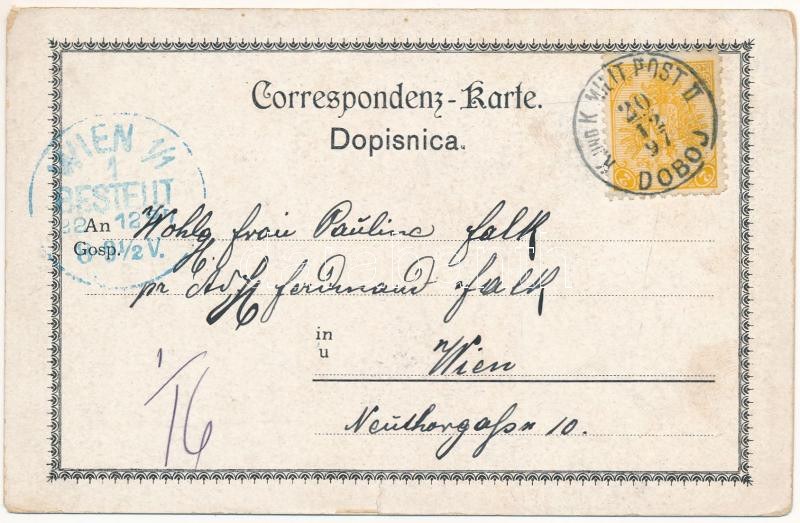 Correspondenz-Karte.
Dopisnica.
K. UND K. MILIT. POST II
20
12
97
DOBOJ
WIEN 1/1
1
BESTELLT
22 12
8-9½V.
An
Gosp.
Wohlg frau Pauline Falk
pr Adr Ferdinand Falk
in
u
Wien
Neuthorgasse 10.
1/16